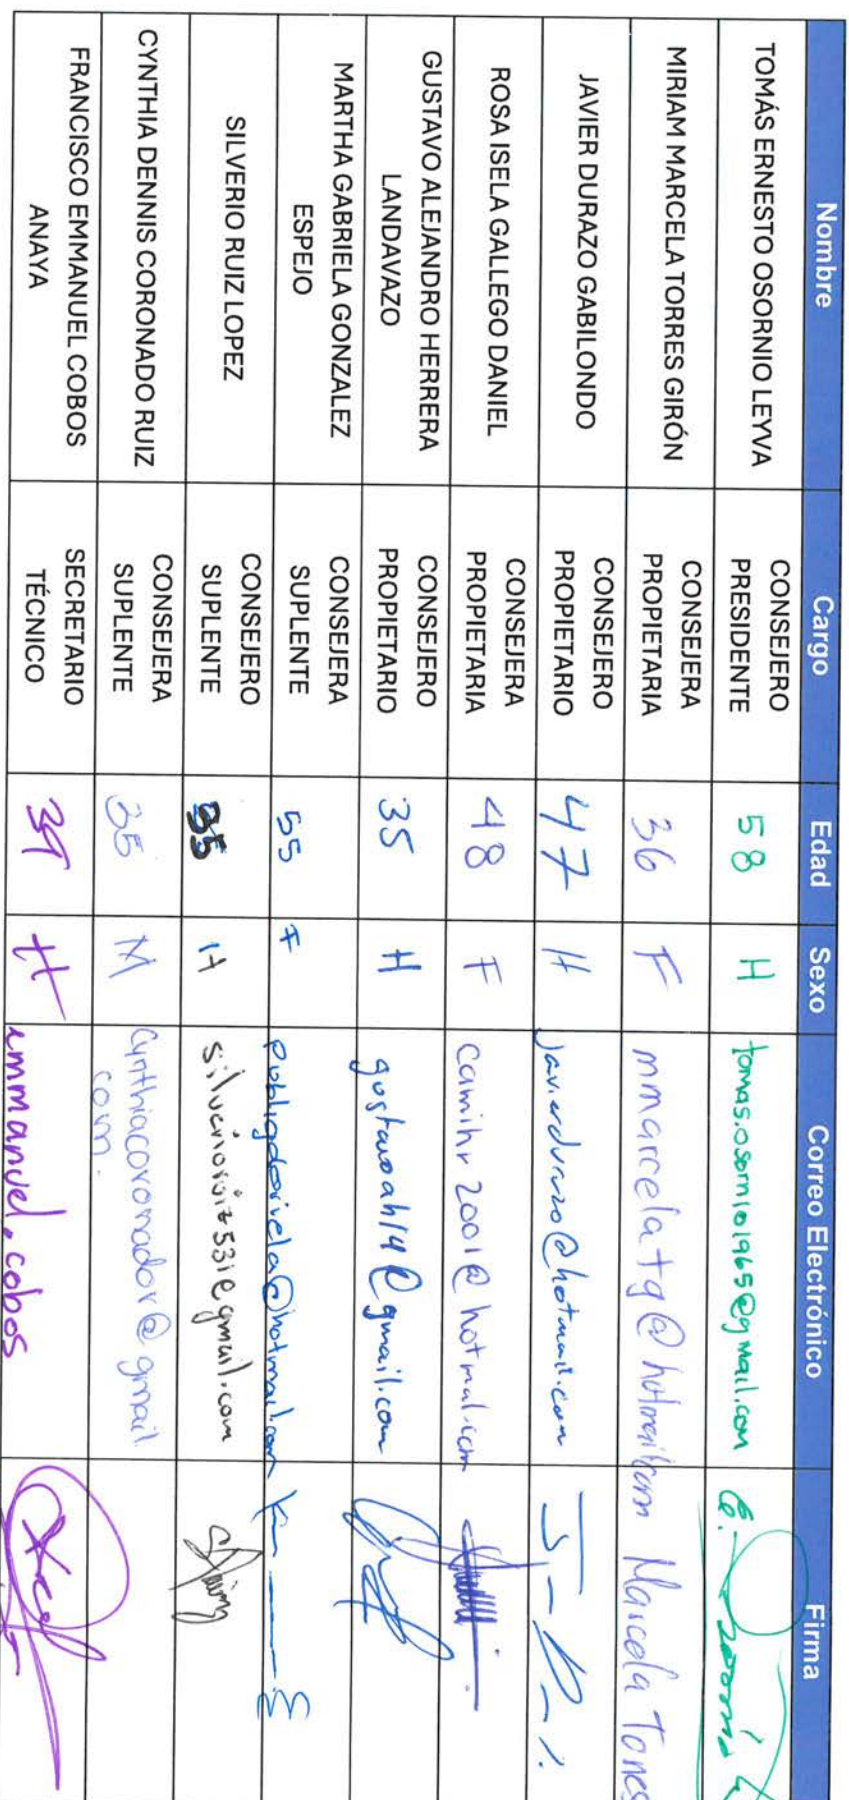 Nombre Cargo Edad Sexo Correo Electrónico Firma
TOMÁS ERNESTO OSORNIO LEYVA
CONSEJERO
PRESIDENTE
58
H
tomas.osornio1965@gmail.com
MIRIAM MARCELA TORRES GIRÓN
CONSEJERA
PROPIETARIA
36
F
mmarcelatg@hotmail.com
Marcela Torres
JAVIER DURAZO GABILONDO
CONSEJERO
PROPIETARIO
47
H
javierdurazo@hotmail.com
ROSA ISELA GALLEGO DANIEL
CONSEJERA
PROPIETARIA
48
F
camihr2001@hotmail.com
GUSTAVO ALEJANDRO HERRERA
LANDAVAZO
CONSEJERO
PROPIETARIO
35
H
gustavoah14@gmail.com
MARTHA GABRIELA GONZALEZ
ESPEJO
CONSEJERA
SUPLENTE
55
F
SILVERIO RUIZ LOPEZ
CONSEJERO
SUPLENTE
H
silverioruiz531@gmail.com
CYNTHIA DENNIS CORONADO RUIZ
CONSEJERA
SUPLENTE
35
M
Cynthiacoronador@gmail
com.
FRANCISCO EMMANUEL COBOS
ANAYA
SECRETARIO
TÉCNICO
39
H
emmanuel.cobos